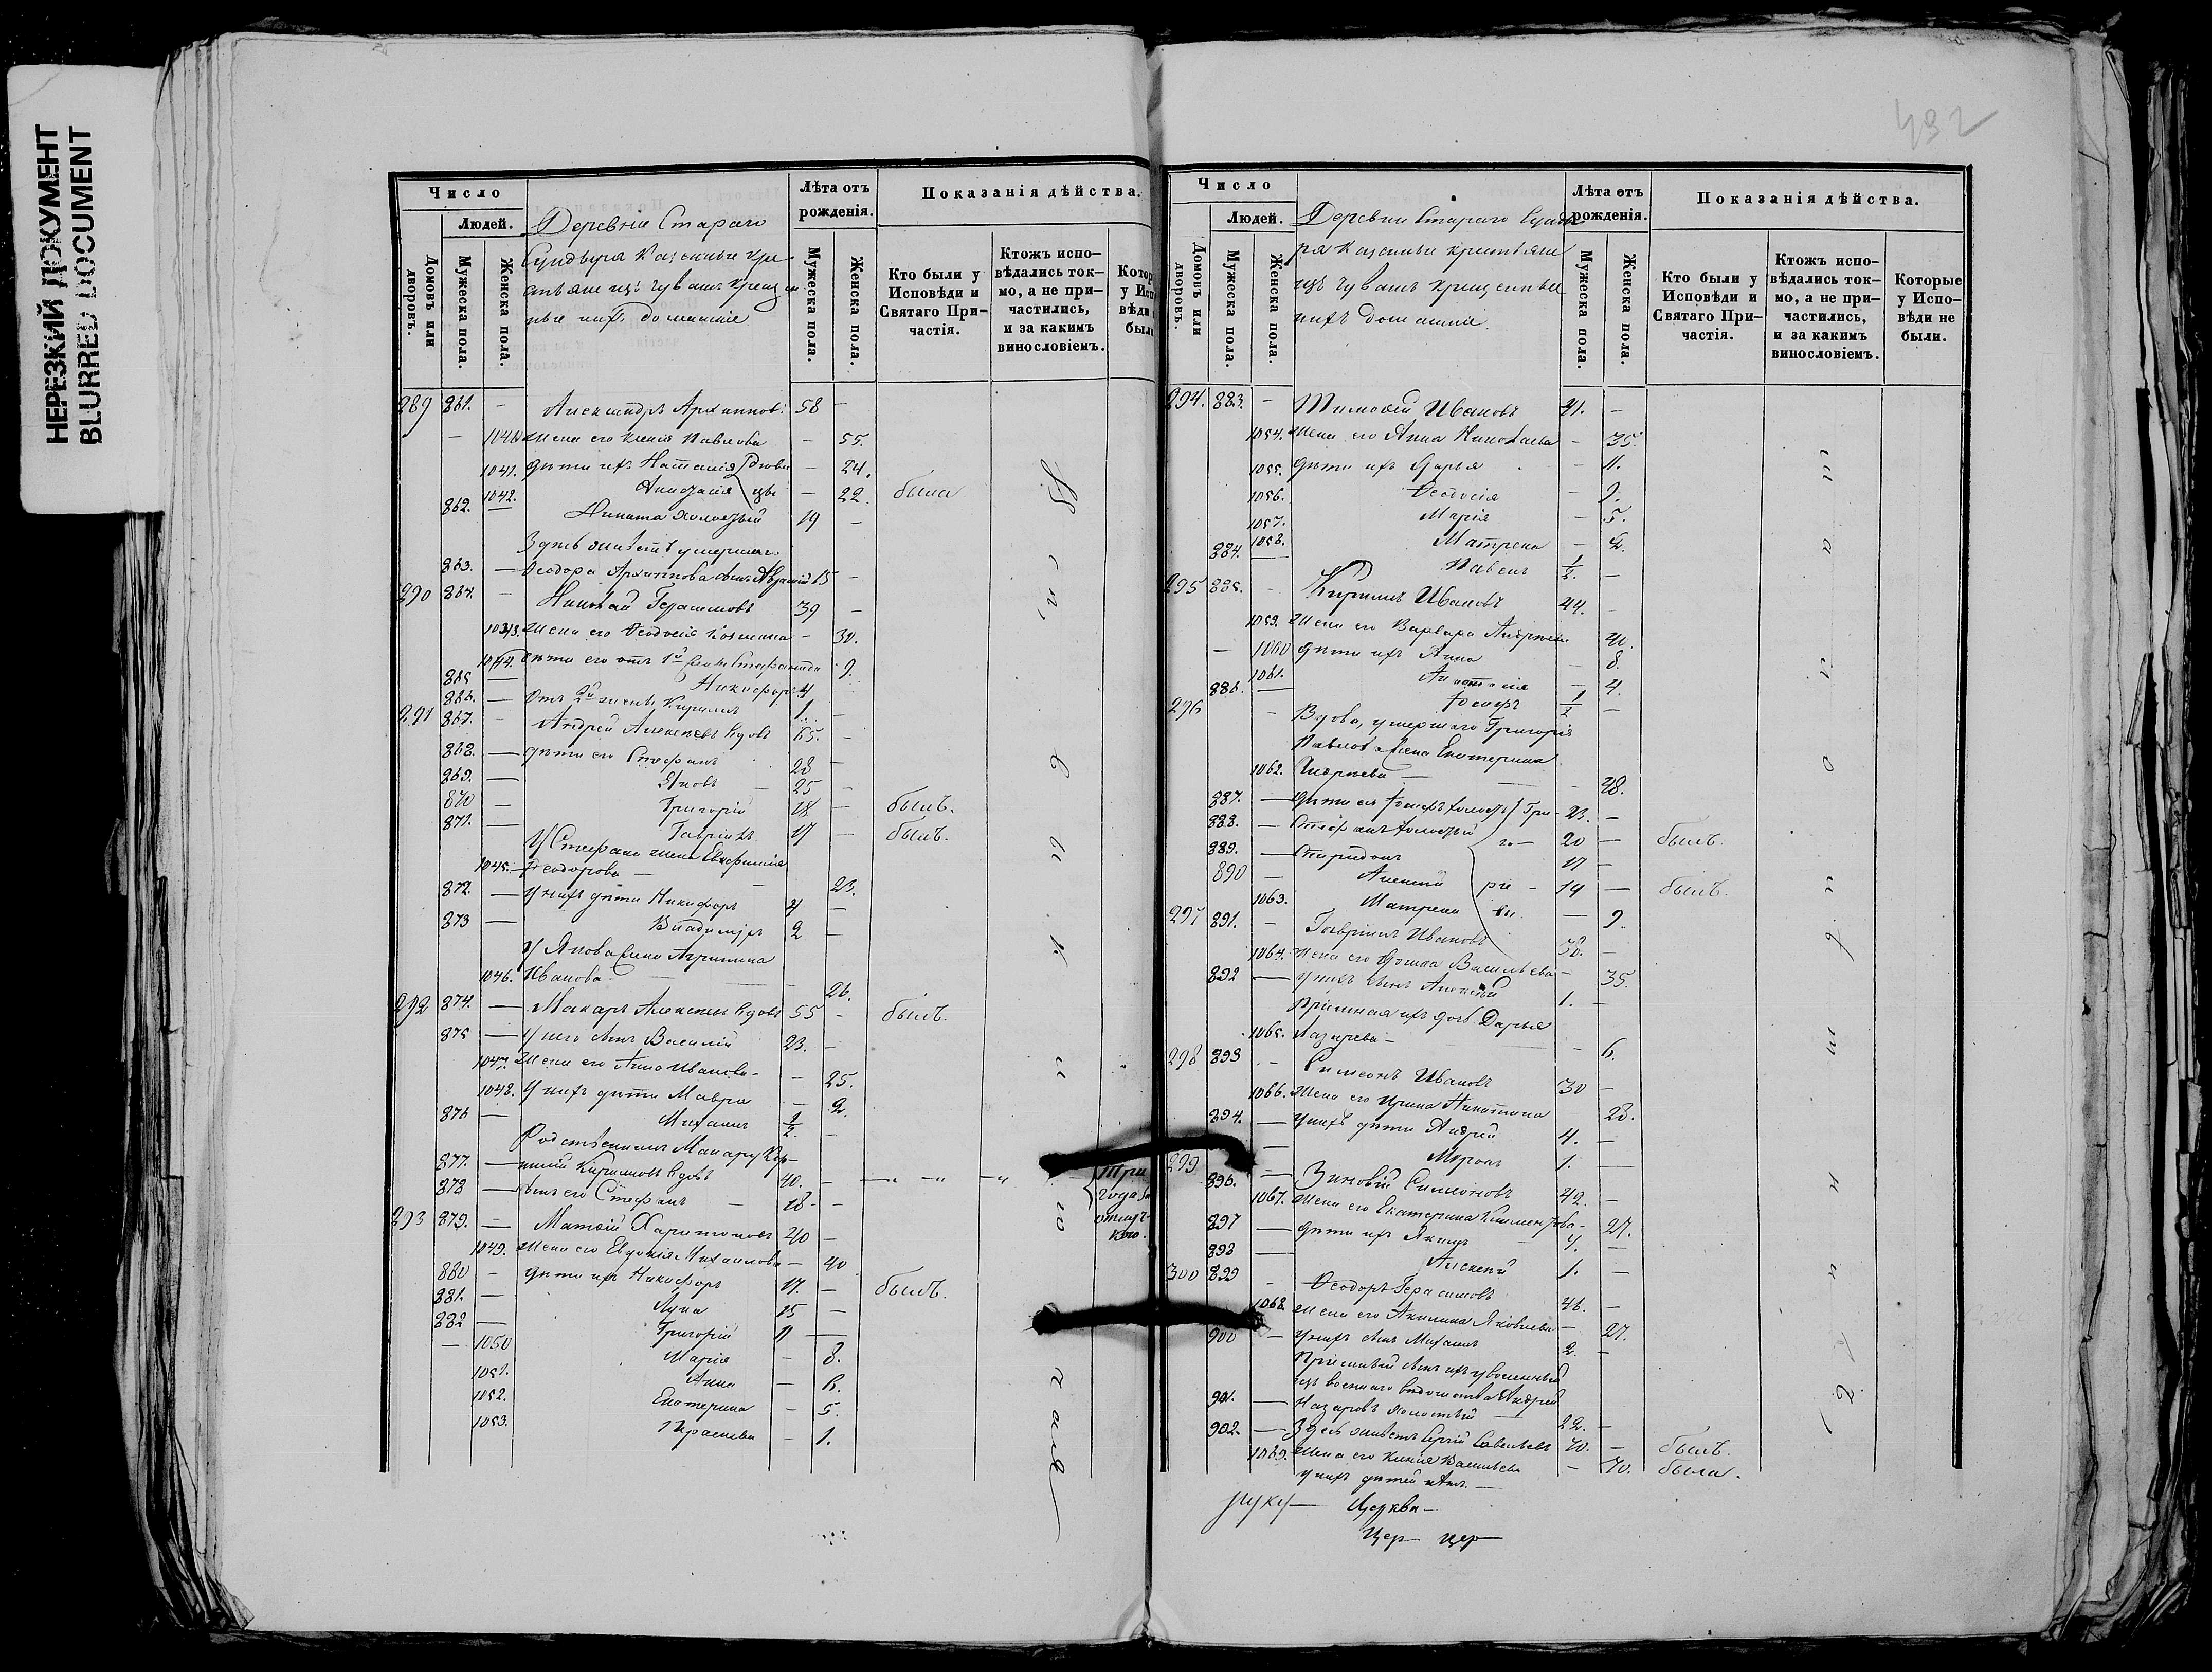 НЕРЕЗКИЙ ДОКУМЕНТ
BLURRED DOCUMENT
492
Число
Людей.
Домовъ или дворовъ.
Мужеска пола.
Женска пола.
Деревни Стараго
Сундыря казенные кре-
стьяне изъ чувашъ крещен-
ные и ихъ домашніе
Лѣта отъ рожденія.
Мужеска пола.
Женска пола.
Показанія дѣйства.
Кто были у Исповѣди и Святаго При-частія.
Ктожъ испо-вѣдались ток-мо, а не при-частились, и за какимъ винословіемъ.
289 861. - Александръ Архиповъ 58 -
- 1040 Жена его Ксенія Павлова - 55.
1041. Дѣти ихъ Наталія - 24.
1042. Анастасія - 22. была
862. - Никита холостый 19 -
Здѣсь живетъ умершаго
863. - Ѳеодора Архипова сынъ 15 -
290 864. - Николай Герасимовъ 39 -
1043. Жена его Ѳеодосія Козмина - 30.
1044. Дѣти его отъ 1й жены 9.
865 - Никифоръ 4
866. - Отъ 2й жены Кириллъ 1. -
291 867. - Андрей Алексѣевъ вдовъ 65. -
868. - Дѣти его Стефанъ 28 -
869. - Яковъ - 25 -
870 - Григорій 18 - былъ.
871. - Гавріилъ 17 - былъ.
У Стефана жена Евфимія
1045. Ѳеодорова - - 23.
872. - У нихъ дѣти Никифоръ 4 -
873 - Владиміръ 2 -
У Якова жена Агрипина
1046. Иванова - - 26.
292 874. - Макаръ Алексѣевъ вдовъ 55 - былъ.
875 - У него сынъ Василій 23. -
1047. Жена его Анна Иванова - - 25.
1048. У нихъ дѣти Мавра - 2.
876 - Михаилъ 1/2. -
Родственникъ Макару
877. - Кириловъ вдовъ 40. -
878 - Сынъ его Стефанъ - 18 - -
Три года въ
293 879. - Матѳій Харитоновъ 40 -
1049. Жена его Евдокія Михаилова - 40
880 - Дѣти ихъ Никифоръ 17. - былъ.
881. - Лука 15 -
882 - Григорій 11 -
- 1050 Марія - 8.
1051. Анна - 6.
1052. Екатерина - 5.
1053. Параскева - 1.
Число
Людей.
Домовъ или дворовъ.
Мужеска пола.
Женска пола.
Деревни Стараго Сунды-
ря казенные крестьяне
изъ чувашъ крещенные
и ихъ домашніе.
Лѣта отъ рожденія.
Мужеска пола.
Женска пола.
Показанія дѣйства.
Кто были у Исповѣди и Святаго При-частія.
Ктожъ испо-вѣдались ток-мо, а не при-частились, и за какимъ винословіемъ.
Которые у Испо-вѣди не были.
294. 883. - Тимоѳей Ивановъ 41. -
1054. Жена его Анна Николаева - 35.
1055. Дѣти ихъ Дарья - 11.
1056. Ѳеодосія - 9.
1057. Марія - 5.
1058. Матрена - 2.
884. - Павелъ 1/2. -
295 885. - Кириллъ Ивановъ 44. -
1059. Жена его Варвара Андреева 40.
- 1060 Дѣти ихъ Анна - 8.
1061. Анастасія - 4.
886. - Ѳеодоръ 1/2 -
296 - Вдова, умершаго Григорія
Павлова жена Екатерина
1062. Андреева - - 48.
887. - Дѣти ея 23. -
888. - Стефанъ холостый 20 - былъ.
889. - Спиридонъ 17 -
890 - Алексѣй 14 - былъ.
1063. Матрена - 9.
297 891. - Гавріилъ Ивановъ 38. -
1064. Жена его Ѳекла Васильева - 35.
892 - У нихъ сынъ Алексѣй 1. -
Пріемная ихъ дочь Дарья
1065. Лазарева - - 6.
298 893 - Симеонъ Ивановъ 30 -
1066. Жена его Ирина Никитина 28.
894. - У нихъ дѣти Андрей 4. -
- Миронъ 1. -
299 896. - Зиновій Симеоновъ 42. -
1067. Жена его Екатерина - 27.
897 - Дѣти ихъ Якимъ 4. -
898 - Алексѣй 1. -
300 899 - Ѳеодоръ Герасимовъ 46. -
1068. Жена его Акилина Яковлева - 27.
900 - У нихъ сынъ Михаилъ 2. -
Пріемный сынъ ихъ уволенный
изъ военнаго вѣдомства Андрей
901. - Назаровъ холостый 22. -
902. - Здѣсь живетъ Сергій Савельевъ 70. - былъ.
1069. Жена его Ксенія Васильева - 70. была.
У нихъ дѣтей нѣтъ. -
руку - Церкви -
Цер- цер-